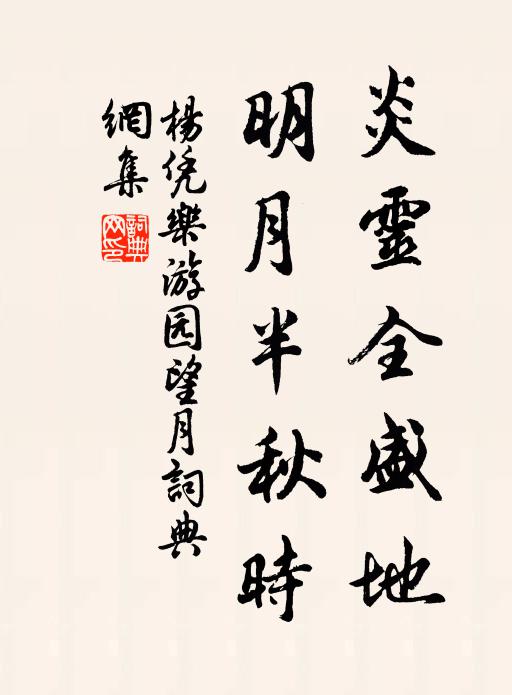 炎靈全盛地
明月半秋時
楊凭樂游园望月詞典
網集
詞典
网印